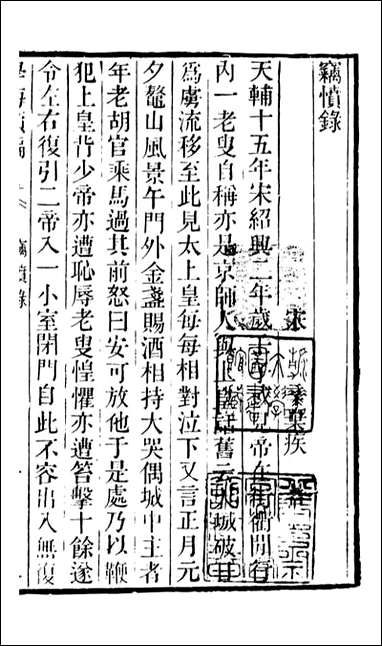 竊憤錄
宋 辛棄疾
天輔十五年宋紹興二年歲壬 帝在 衢間行
內一老叟自稱亦是京師人與上皇 舊云 城破日
爲虜流移至此見太上皇每每相對泣下又言正月元
夕鼇山風景午門外金盞賜酒相持大哭偶城中主者
年老胡官乘馬過其前怒曰安可放他于是處乃以鞭
犯上皇背少帝亦遭恥辱老叟惶懼亦遭笞擊十餘遂
令左右復引二帝入一小室閉門自此不容出入無復
學海類編 竊憤錄 一